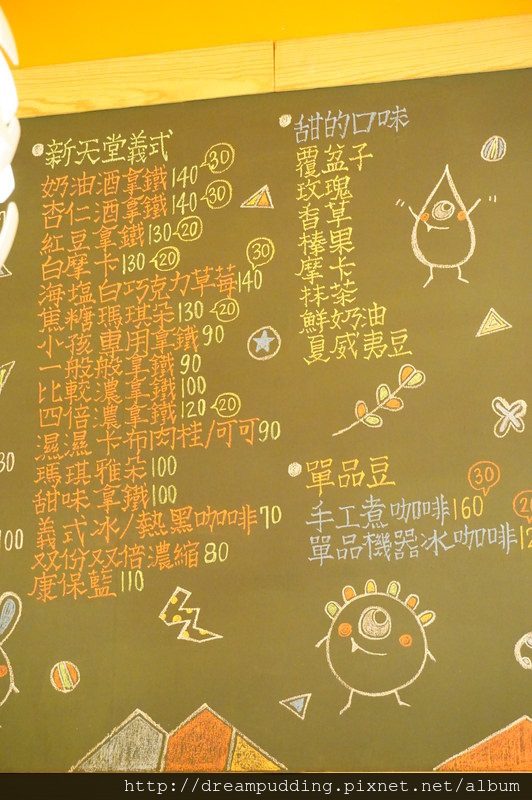 新天堂義式
奶油酒拿鐵140-30
杏仁酒拿鐵140-30
紅豆拿鐵130-20
白摩卡130-20
海塩白巧克力草莓140 30
焦糖瑪琪朵130-20
小孩專用拿鐵90
一般般拿鐵90
比較濃拿鐵100
四倍濃拿鐵120-20
濕濕卡布肉桂/可可90
瑪琪雅朵100
甜味拿鐵100
義式冰/熱黑咖啡70
双份双倍濃縮80
康保藍110
30
100
甜的口味
覆盆子
玫瑰
香草
榛果
摩卡
抹茶
鮮奶油
夏威夷豆
單品豆
手工煮咖啡160 30
單品機器冰咖啡
http://dreampudding.pixnet.net/album